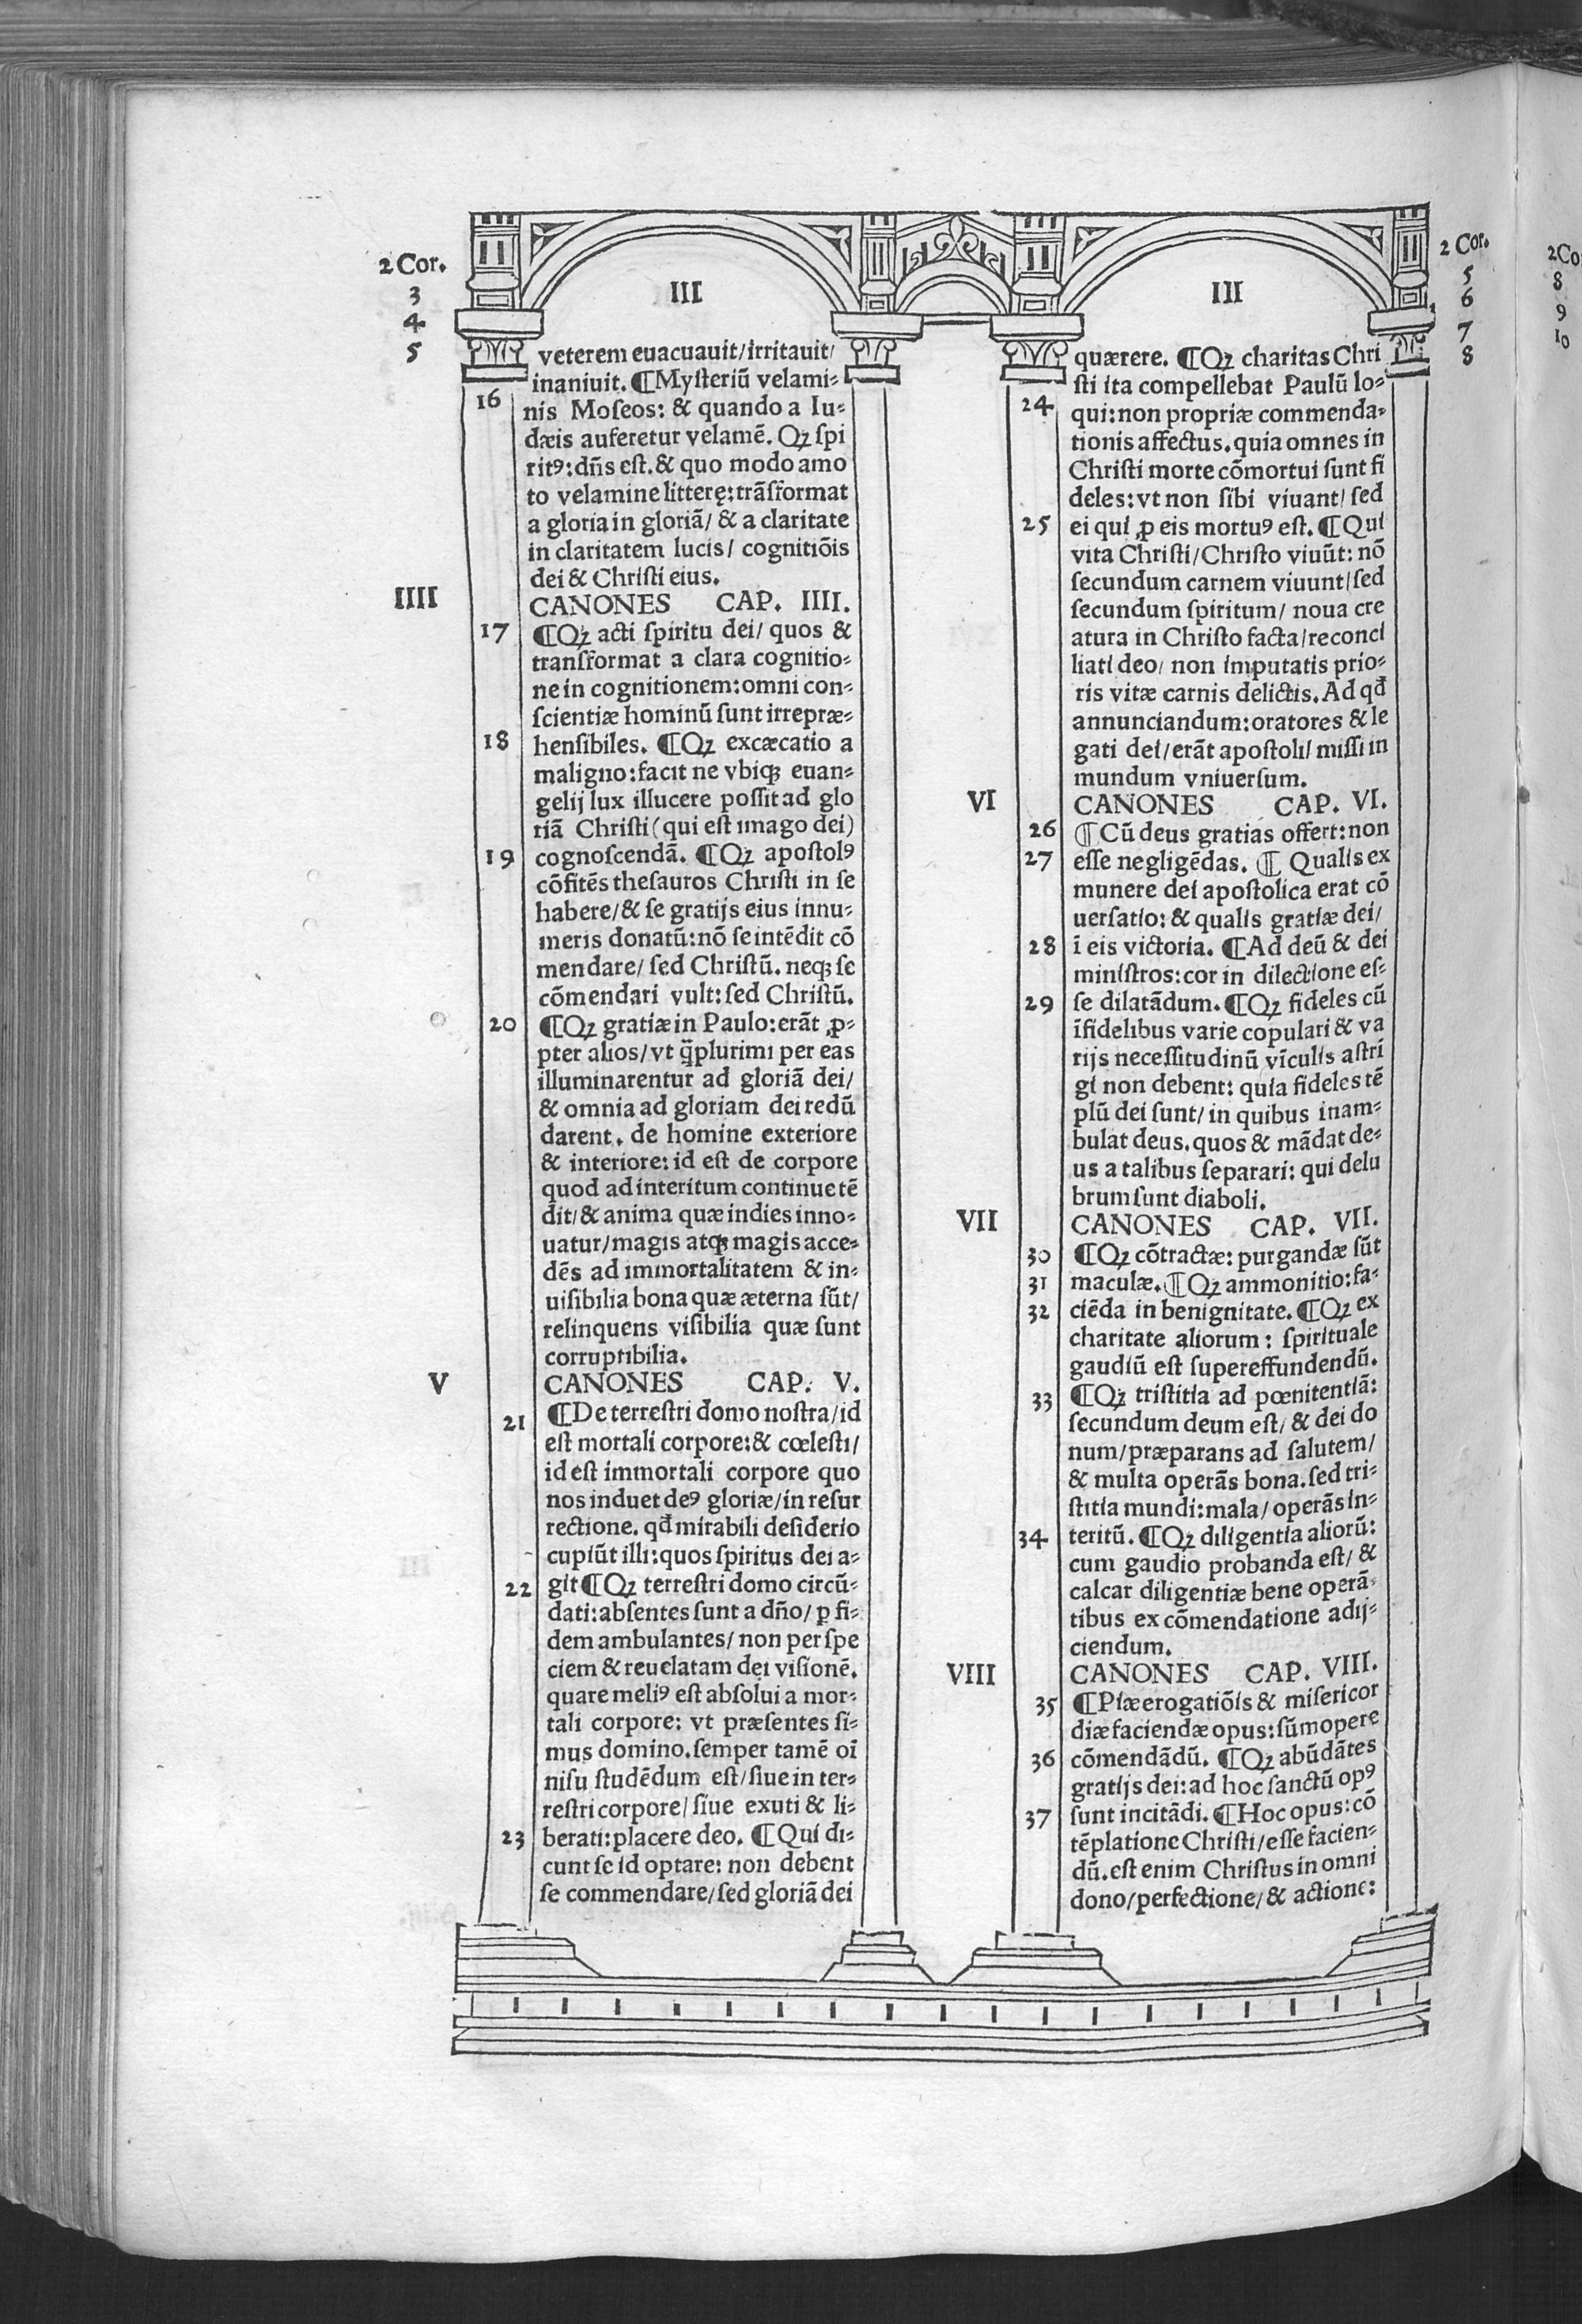 2 Cor.
3
4
5
III
veterem euacuauit/irritauit/
inaniuit. ¶Mysteriū velami⸗
16 nis Moseos: & quando a Iu⸗
dæis auferetur velamē. Qꝫ spi
ritꝰ: dñs est. & quo modo amo
to velamine litterę: trāsformat
a gloria in gloriā/ & a claritate
in claritatem lucis/ cognitiōis
dei & Christi eius.
IIII CANONES CAP. IIII.
17 ¶Qꝫ acti spiritu dei/ quos &
transformat a clara cognitio⸗
ne in cognitionem: omni con⸗
scientiæ hominū sunt irrepræ⸗
18 hensibiles. ¶Qꝫ excæcatio a
maligno: facit ne vbiqꝫ euan⸗
gelij lux illucere possit ad glo
riā Christi (qui est imago dei)
19 cognoscendā. ¶Qꝫ apostolꝰ
cōfitēs thesauros Christi in se
habere/ & se gratijs eius innu⸗
meris donatū: nō se intēdit cō
mendare/ sed Christū. neqꝫ se
cōmendari vult: sed Christū.
20 ¶Qꝫ gratiæ in Paulo: erāt ꝓ⸗
pter alios/ vt q̄plurimi per eas
illuminarentur ad gloriā dei/
& omnia ad gloriam dei redū
darent. de homine exteriore
& interiore: id est de corpore
quod ad interitum continue tē
dit/ & anima quæ indies inno⸗
uatur/ magis atqꝫ magis acce⸗
dēs ad immortalitatem & in⸗
uisibilia bona quæ æterna sūt/
relinquens visibilia quæ sunt
corruptibilia.
V CANONES CAP. V.
21 ¶De terrestri domo nostra/ id
est mortali corpore: & cœlesti/
id est immortali corpore quo
nos induet deꝰ gloriæ/ in resur
rectione. qđ mirabili desiderio
cupiūt illi: quos spiritus dei a⸗
22 git ¶Qꝫ terrestri domo circū⸗
dati: absentes sunt a dño/ ꝑ fi⸗
dem ambulantes/ non per spe
ciem & reuelatam dei visionē.
quare meliꝰ est absolui a mor⸗
tali corpore: vt præsentes si⸗
mus domino. semper tamē oī
nisu studēdum est/ siue in ter⸗
restri corpore/ siue exuti & li⸗
23 berati: placere deo. ¶Qui di⸗
cunt se id optare: non debent
se commendare/ sed gloriā dei
2 Cor.
5
6
7
8
III
quærere. ¶Qꝫ charitas Chri
sti ita compellebat Paulū lo⸗
24 qui: non propriæ commenda⸗
tionis affectus. quia omnes in
Christi morte cōmortui sunt fi
deles: vt non sibi viuant/ sed
25 ei qui ꝓ eis mortuꝰ est. ¶Qui
vita Christi/ Christo viuūt: nō
secundum carnem viuunt/ sed
secundum spiritum/ noua cre
atura in Christo facta/ reconci
liati deo/ non imputatis prio⸗
ris vitæ carnis delictis. Ad qđ
annunciandum: oratores & le
gati dei/ erāt apostoli/ missi in
mundum vniuersum.
VI CANONES CAP. VI.
26 ¶Cū deus gratias offert: non
27 esse negligēdas. ¶ Qualis ex
munere dei apostolica erat cō
uersatio: & qualis gratiæ dei/
28 ī eis victoria. ¶Ad deū & dei
ministros: cor in dilectione es⸗
29 se dilatādum. ¶Qꝫ fideles cū
īfidelibus varie copulari & va
rijs necessitudinū vīculis astrī
gi non debent: quia fideles tē
plū dei sunt/ in quibus inam⸗
bulat deus. quos & mādat de⸗
us a talibus separari: qui delu
brum sunt diaboli.
VII CANONES CAP. VII.
30 ¶Qꝫ cōtractæ: purgandæ sūt
31 maculæ. ¶Qꝫ ammonitio: fa⸗
32 ciēda in benignitate. ¶Qꝫ ex
charitate aliorum: spirituale
gaudiū est supereffundendū.
33 ¶Qꝫ tristitia ad pœnitentiā:
secundum deum est/ & dei do
num/ præparans ad salutem/
& multa operās bona. sed tri⸗
stitia mundi: mala/ operās in⸗
34 teritū. ¶Qꝫ diligentia aliorū:
cum gaudio probanda est/ &
calcar diligentiæ bene operā⸗
tibus ex cōmendatione adij⸗
ciendum.
VIII CANONES CAP. VIII.
35 ¶Piæ erogatiōis & misericor
diæ faciendæ opus: sūmopere
36 cōmendādū. ¶Qꝫ abūdātes
gratijs dei: ad hoc sanctū opꝰ
37 sunt incitādi. ¶Hoc opus: cō
tēplatione Christi/ esse facien⸗
dū. est enim Christus in omni
dono/ perfectione/ & actione:
2Co
8
9
10